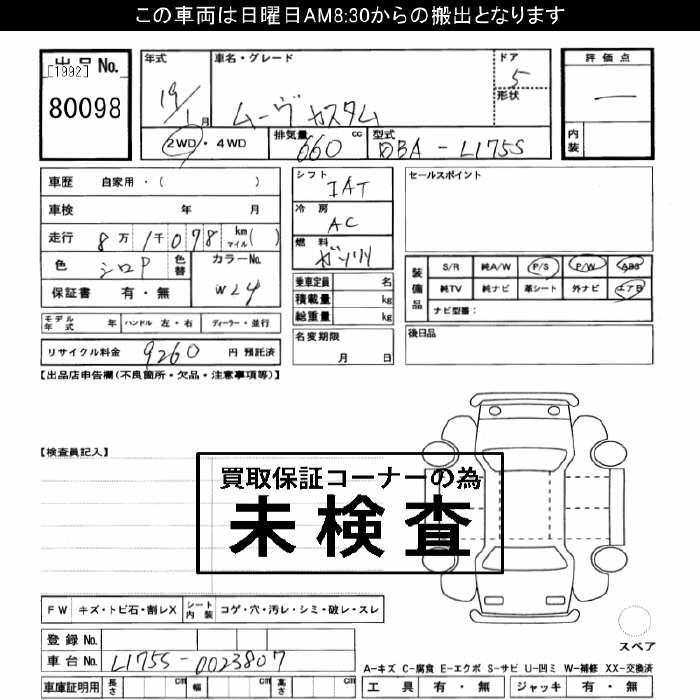 この車両は日曜日AM8:30からの搬出となります
出品No. [1992] 80098
年式 19/1月
車名・グレード ムーヴ カスタム
ドア 5
形状
評価点 —
内装
2WD・4WD
排気量 660 cc
型式 DBA-L175S
車歴 自家用・( )
車検 年 月
走行 8万1千078 km マイル( )
色 シロP 色替
カラーNo. W24
保証書 有・無
モデル年式 年 ハンドル 左・右 ディーラー・並行
リサイクル料金 9260 円 預託済
シフト IAT
冷房 AC
燃料 ガソリン
乗車定員 名
積載量 kg
総重量 kg
名変期限 月 日
セールスポイント
装備品 S/R 純A/W P/S P/W ABS
純TV 純ナビ 革シート 外ナビ エアB
ナビ型番:
後日品
【出品店申告欄(不良箇所・欠品・注意事項等)】
【検査員記入】
買取保証コーナーの為
未検査
FW キズ・トビ石・割レX シート内装 コゲ・穴・汚レ・シミ・破レ・スレ
登録No.
車台No. L175S-0023807
車庫証明用 長さ cm 幅 cm 高さ cm
スペア
A-キズ C-腐食 E-エクボ S-サビ U-凹ミ W-補修 XX-交換済
工具 有・無 ジャッキ 有・無